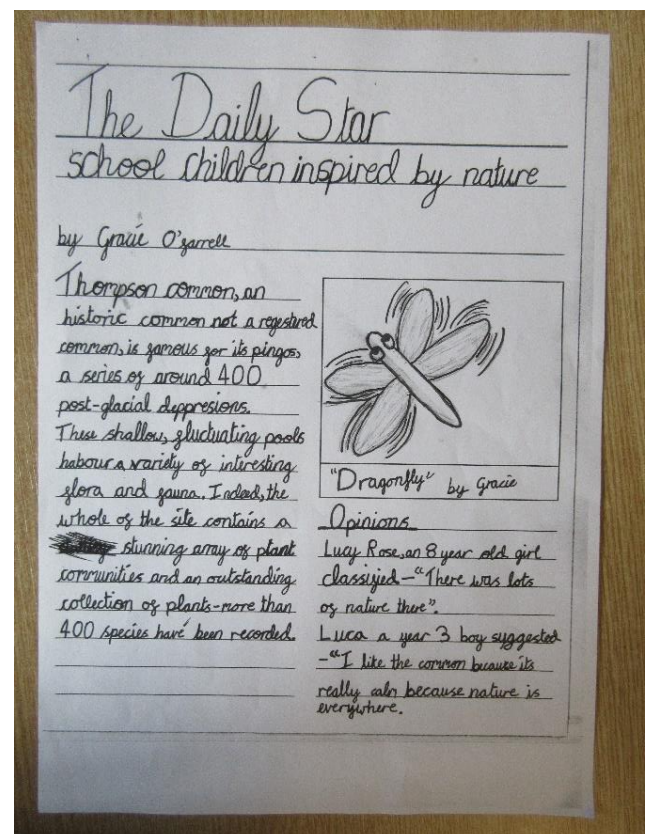 The Daily Star
school children inspired by nature
by Gracie O'farrell
Thompson common, an
historic common not a regestured
common, is famous for its pingos,
a series of around 400
post-glacial deppresions.
These shallow, fluctuating pools
habour a variety of interesting
flora and fauna. Indeed, the
whole of the site contains a
stunning array of plant
communities and an outstanding
collection of plants-more than
400 species have been recorded.
"Dragonfly" by Gracie
Opinions
Lucy Rose, an 8 year old girl
classified-"There was lots
of nature there".
Luca a year 3 boy suggested
-"I like the common because its
really caln because nature is
everywhere.